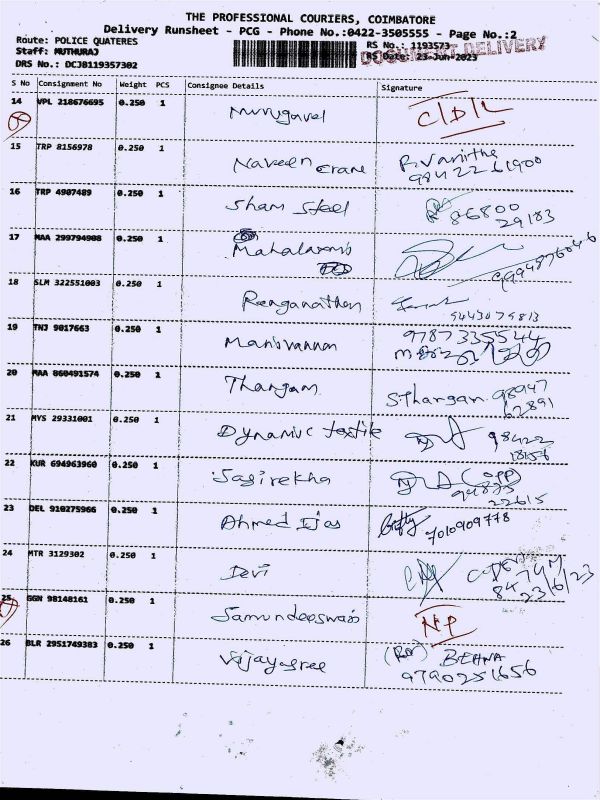 THE PROFESSIONAL COURIERS, COIMBATORE
Delivery Runsheet - PCG - Phone No.:0422-3505555 - Page No.:2
Route: POLICE QUATERES
Staff: MUTHURAJ
DRS No.: DCJB119357302
RS No.: 1193573
RS Date: 23-Jun-2023
DOCUMENT DELIVERY
S No Consignment No Weight PCS Consignee Details Signature
14 VPL 218676695 0.250 1 Murugavel C/D/L
15 TRP 8156978 0.250 1 Naveen Crane R.Vanitha
9842261900
16 TRP 4907489 0.250 1 Sham Steel 86800
29183
17 MAA 299794908 0.250 1
18 SLM 322551003 0.250 1 Renganathan
9443079813
19 TNJ 9017663 0.250 1 Manivannan 9787335544
20 MAA 860491574 0.250 1 Thangam S.Thangam 98947
62891
21 MYS 29331001 0.250 1 Dynamic textile 98422
18154
22 KUR 694963960 0.250 1 Sasirekha (opp)
94875
22615
23 DEL 910275966 0.250 1 Ahmed Ijas 7010909778
24 MTR 3129302 0.250 1 Devi
23/6/23
25 GGN 98148161 0.250 1 NP
26 BLR 2951749383 0.250 1 Vijayasree
9790251656